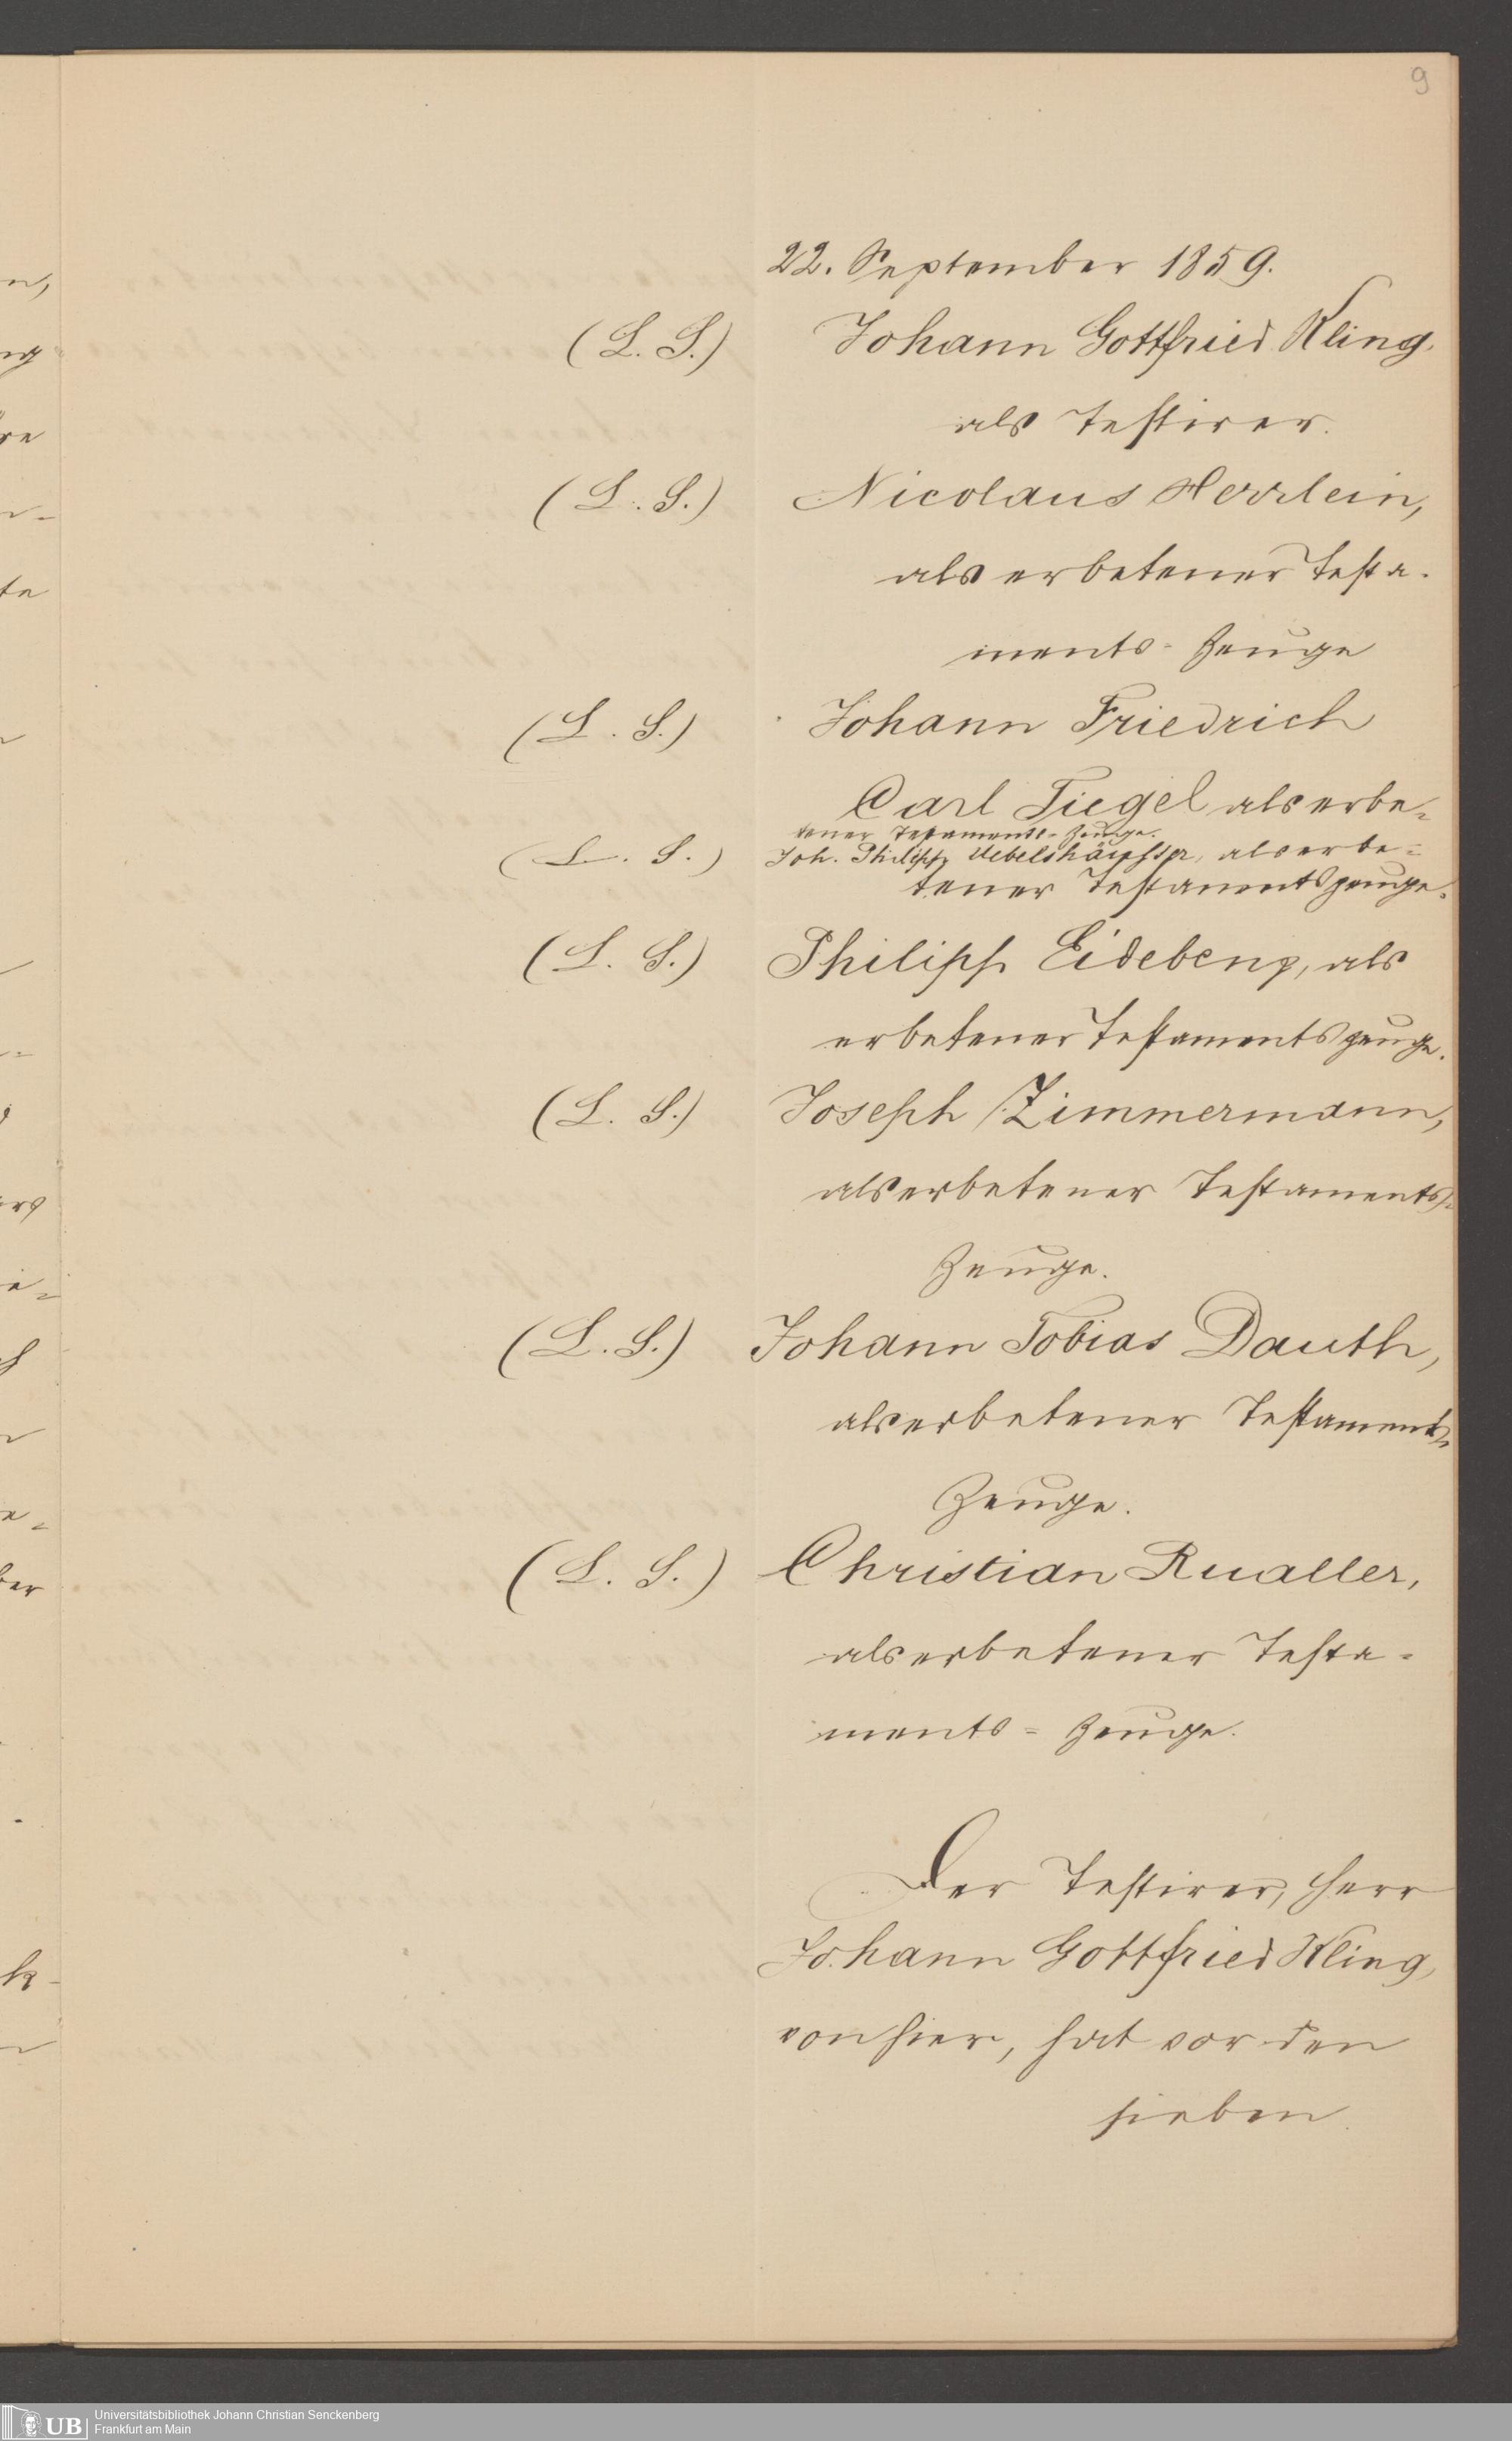 9
22. September 1859.
(L. S.) Johann Gottfried Kling,
als Testirer.
(L. S.) Nicolaus Herrlein,
als erbetener Testa-
ments-Zeuge
(L. S.) Johann Friedrich
Carl Tiegel als erbe-
tener Testaments-Zeuge.
(L. S.) Joh. Philipp als erbe-
tener Testamentszeuge.
(L. S.) Philipp als
erbetener Testamentszeuge.
(L. S.) Joseph Zimmermann,
als erbetener Testaments-
Zeuge.
(L. S.) Johann Tobias Dauth,
als erbetener Testaments-
Zeuge.
(L. S.) Christian Rualler,
als erbetener Testa-
ments-Zeuge.
Der Testirer, Herr
Johann Gottfried Kling,
von hier, hat vor den
sieben
UB
Universitätsbibliothek Johann Christian Senckenberg
Frankfurt am Main